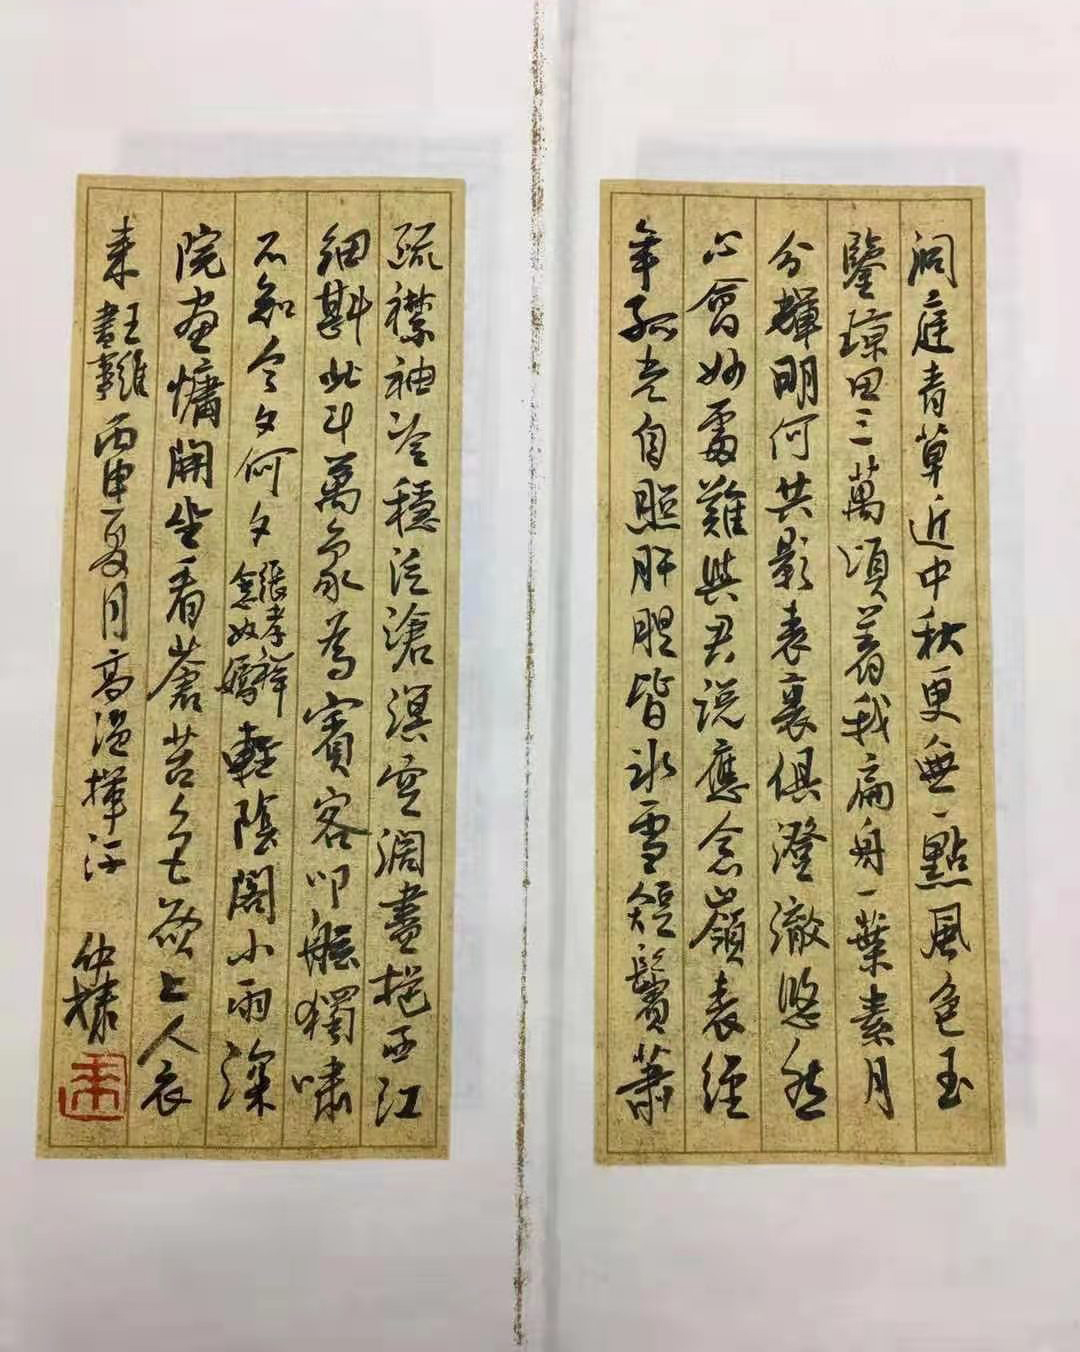 洞庭青草近中秋更無一點風色玉
鑒瓊田三萬頃著我扁舟一葉素月
分輝明河共影表裏俱澄澈悠然
心會妙處難與君説應念嶺表經
年孤光自照肝膽皆冰雪短鬢蕭
疏襟袖冷穩泛滄溟空闊盡挹西江
細斟北斗萬象為賓客叩舷獨嘯
不知今夕何夕 張孝祥念奴嬌 輕陰閣小雨深
院晝慵開坐看蒼苔色欲上人衣
來 王維書事 丙申夏月高溫揮汗 仲